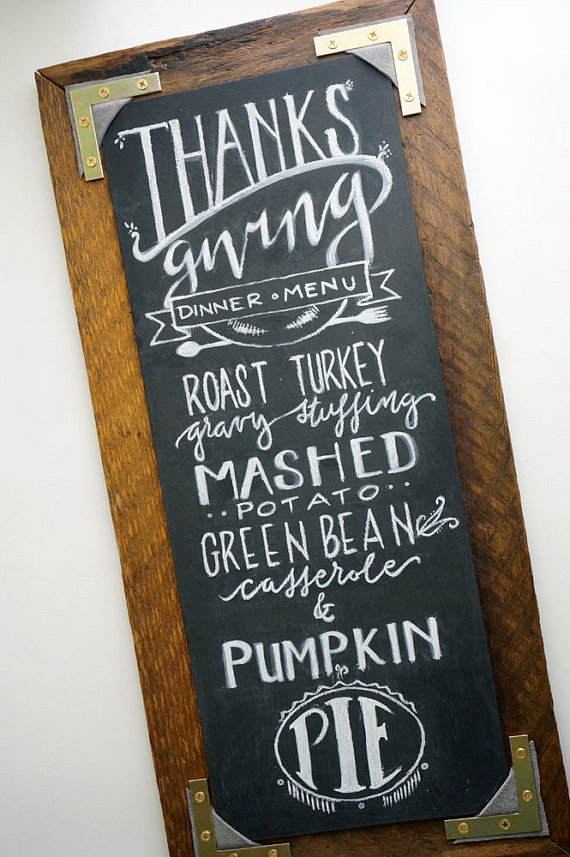 THANKS
giving
DINNER • MENU
ROAST TURKEY
gravy stuffing
MASHED
··POTATO··
GREEN BEAN
casserole
&
PUMPKIN
PIE